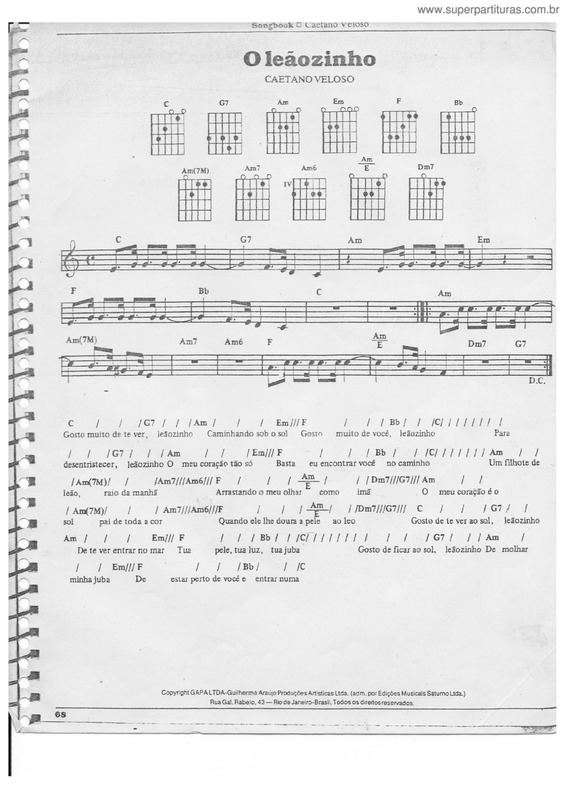 www.superpartituras.com.br
Songbook □ Caetano Veloso
O leãozinho
CAETANO VELOSO
C G7 Am Em F Bb
Am(7M) Am7 Am6 Am/E Dm7
IV
C G7 Am Em
F Bb C Am
Am(7M) Am7 Am6 F Am/E Dm7 G7
D.C.
C / / / G7 / / / Am / / / Em /// F / / / Bb / / /C/ / / / / / / /
Gosto muito de te ver, leãozinho Caminhando sob o sol Gosto muito de você, leãozinho Para
/ / / G7 / / / Am / / /Em/// F / / / Bb / / /C/ / / / / / / Am /
desentristecer, leãozinho O meu coração tão só Basta eu encontrar você no caminho Um filhote de
/ Am(7M)/ / /Am7///Am6/// F / / / Am/E / / /Dm7///G7/// Am /
leão, raio da manhã Arrastando o meu olhar como imã O meu coração é o
/ Am(7M)/ / Am7///Am6///F / / / Am/E / /Dm7///G7/// C / / / G7 / /
sol pai de toda a cor Quando ele lhe doura a pele ao leo Gosto de te ver ao sol, leãozinho
Am / / / Em/// F / / / Bb / / /C/ / / / / / / / / / / G7 / / / Am /
De te ver entrar no mar Tua pele, tua luz, tua juba Gosto de ficar ao sol, leãozinho De molhar
/ / Em/// F / / / Bb/ / /C
minha juba De estar perto de você e entrar numa
Copyright GAPA LTDA-Guilherme Araújo Produções Artísticas Ltda. (adm. por Edições Musicais Saturno Ltda.)
Rua Gal. Rabelo, 43 — Rio de Janeiro-Brasil. Todos os direitos reservados.
68